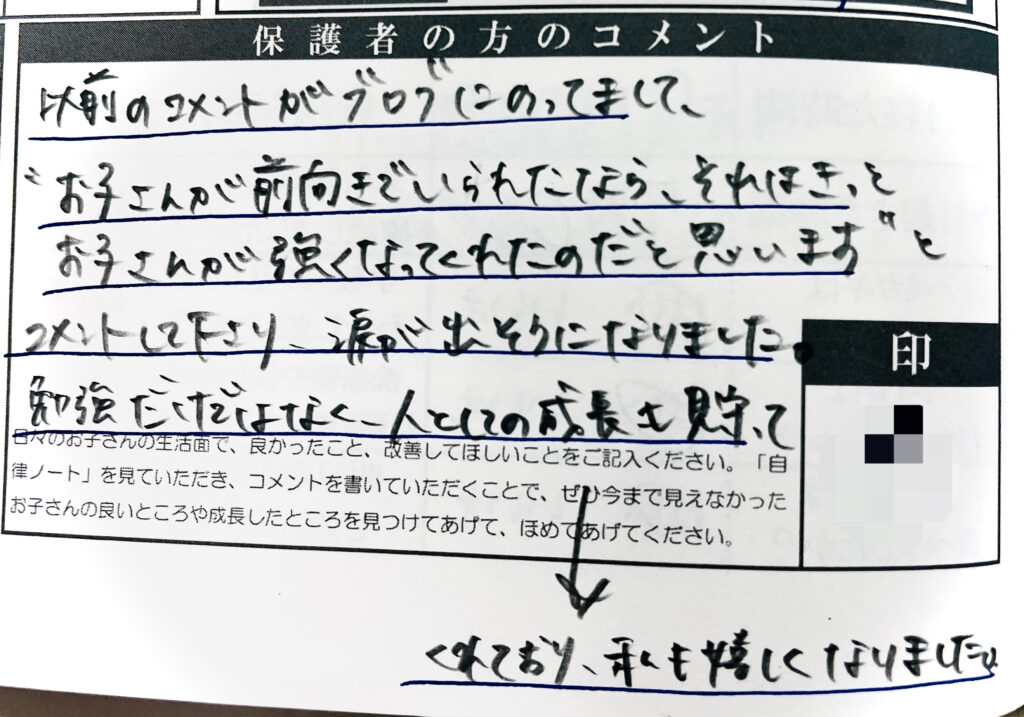 保護者の方のコメント
以前のコメントがブログにのってまして、
〝お子さんが前向きでいられたなら、それはきっと
お子さんが強くなってくれたのだと思います〟と
コメントして下さり、涙が出そうになりました。
印
勉強だけではなく、一人としての成長も見守って
日々のお子さんの生活面で、良かったこと、改善してほしいことをご記入ください。「自
律ノート」を見ていただき、コメントを書いていただくことで、ぜひ今まで見えなかった
お子さんの良いところや成長したところを見つけてあげて、ほめてあげてください。
くれており、私も嬉しくなりました。